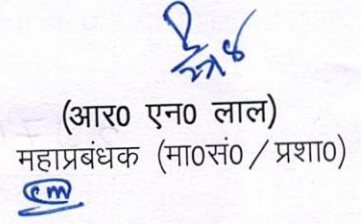 (आर० एन० लाल)
महाप्रबंधक (मा०सं० / प्रशा०)